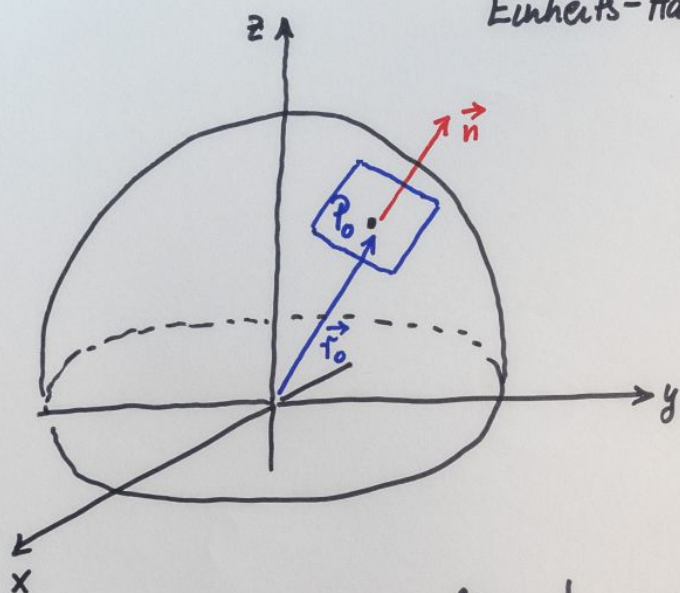 Einheits-
z
n
P₀
r₀
y
x